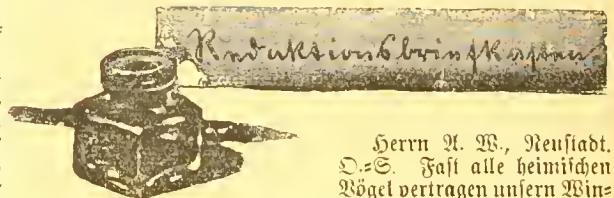 Redaktionsbriefkasten
Herrn A. W., Neustadt.
O.=S. Fast alle heimischen
Vögel vertragen unsern Win=